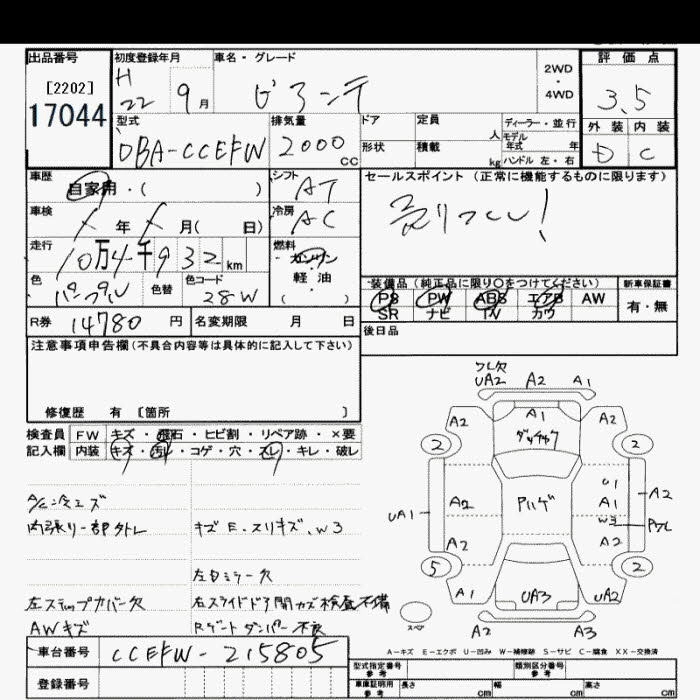 出品番号 初度登録年月 車名・グレード 2WD・4WD 評価点
[2202] H 22 9月 ビアンテ 3.5
17044 型式 排気量 ドア 定員 人 ディーラー・並行 外装 内装
DBA-CCEFW 2000cc 形状 積載 kg モデル年式 年 D C
ハンドル 左・右
車歴 自家用・( ) シフト AT セールスポイント (正常に機能するものに限ります)
車検 年 月( 日) 冷房 AC 売りつくし!
走行 10万4千932km 燃料 ガソリン・軽油・( )
色 パープル 色替 色コード 28W 装備品 (純正品に限り○をつけてください) 新車保証書
PS PW ABS エアB AW 有・無
SR ナビ TV カワ
R券 14780円 名変期限 月 日 後日品
注意事項申告欄(不具合内容等は具体的に記入して下さい)
修復歴 有 〔箇所 〕
検査員 FW キズ・飛石・ヒビ割・リペア跡・×要
記入欄 内装 キズ・汚レ・コゲ・穴・スレ・キレ・破レ
A/C冷エズ
内張り一部外レ キズE.スリキズ、W3
左ミラー欠
左ステップカバー欠 右スライドドア開カズ 検査不備
AWキズ Rゲートダンパー不良
UA2 A2 A1
A2 A1 A2
2 2
UA1 A2 U1 A1 A2
W3
A2 A2
5 2
A1 UA3 UA2
スペア A2 A3
A-キズ E-エクボ U-凹み W-補修跡 S-サビ C-腐食 XX-交換済
車台番号 CCEFW-215805
登録番号
型式指定番号 参考 類別区分番号 参考
車庫証明用 参考 長さ cm 幅 cm 高さ cm